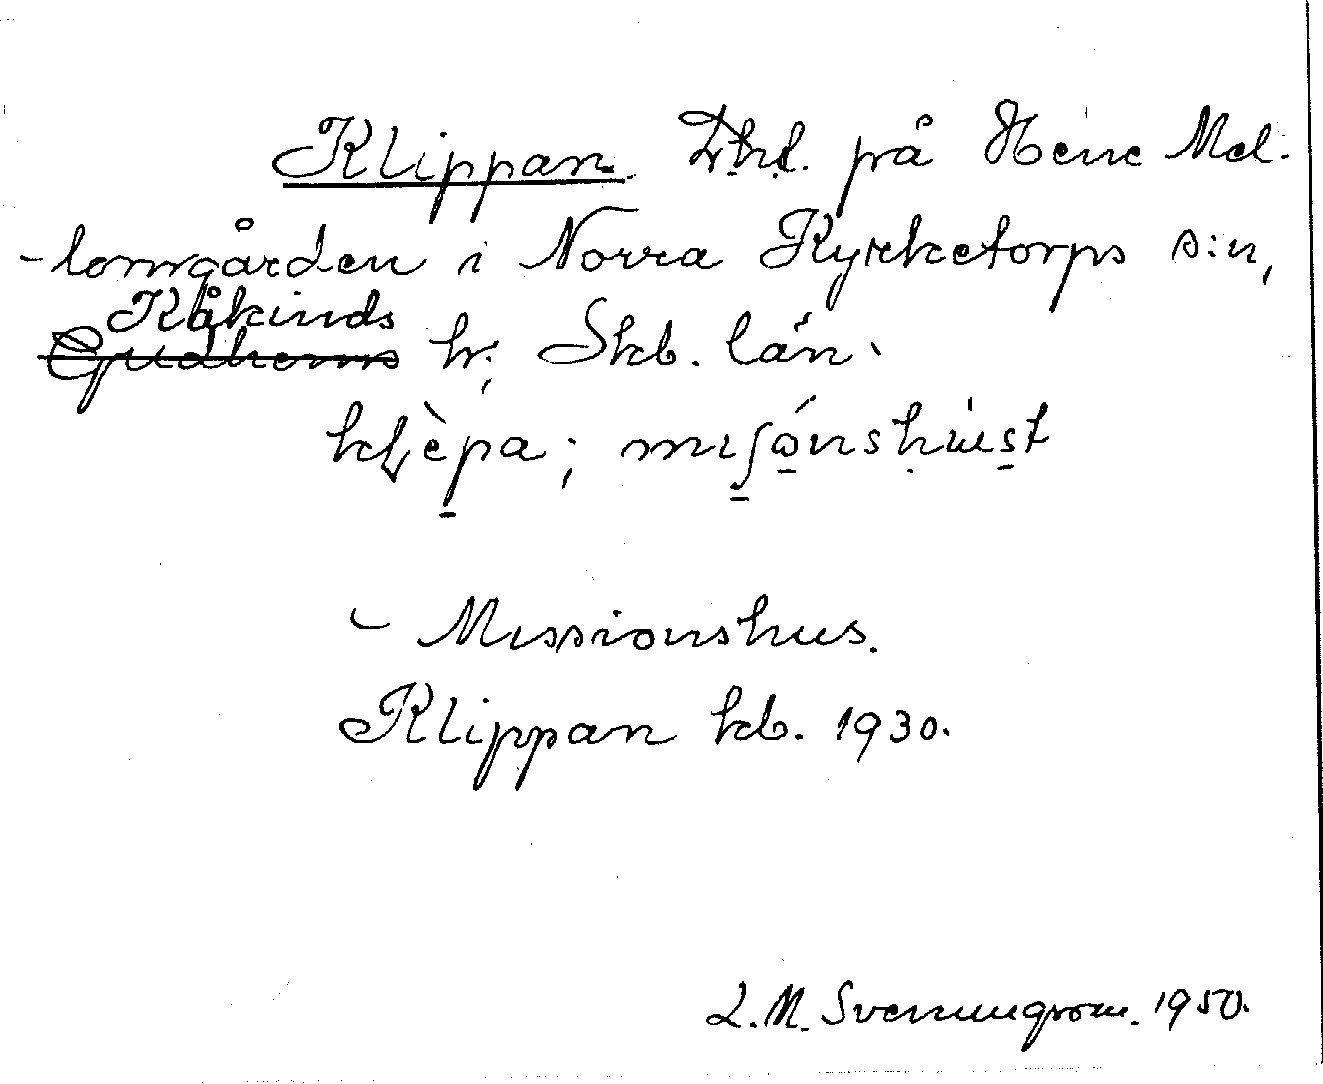 Klippan. Lht. på Hene Mel-
-lomgården i Norra Kyrketorps s:n,
Kåkinds
Gudhems hd; Skb. län.
klèpa; miʃónshúst
- Missionshus.
Klippan kb. 1930.
L.M. Svenungsson. 1950.